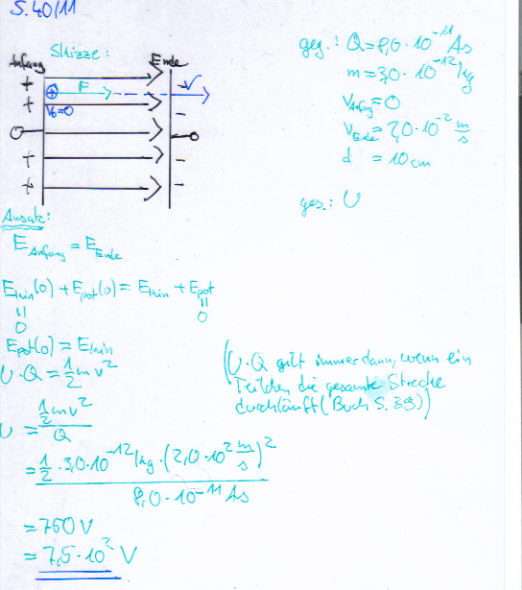 S. 40/11
Skizze:
Anfang
Ende
+
F
-
v
+
⊕
v₀=0
-
-
+
-
+
-
geg.: Q = 8,0 · 10⁻¹¹ As
m = 3,0 · 10⁻¹² kg
v_Anfang = 0
v_Ende = 2,0 · 10⁻² m/s
d = 10 cm
ges.: U
Ansatz:
E_Anfang = E_Ende
E_kin(0) + E_pot(0) = E_kin + E_pot
=0
=0
E_pot(0) = E_kin
U · Q = ½ m v²
(U · Q gilt immer dann, wenn ein
Teilchen die gesamte Strecke
durchläuft (Buch S. 39))
U = ½ m v² / Q
= ½ · 3,0 · 10⁻¹² kg · (2,0 · 10² m/s)² / 8,0 · 10⁻¹¹ As
= 750 V
= 7,5 · 10² V